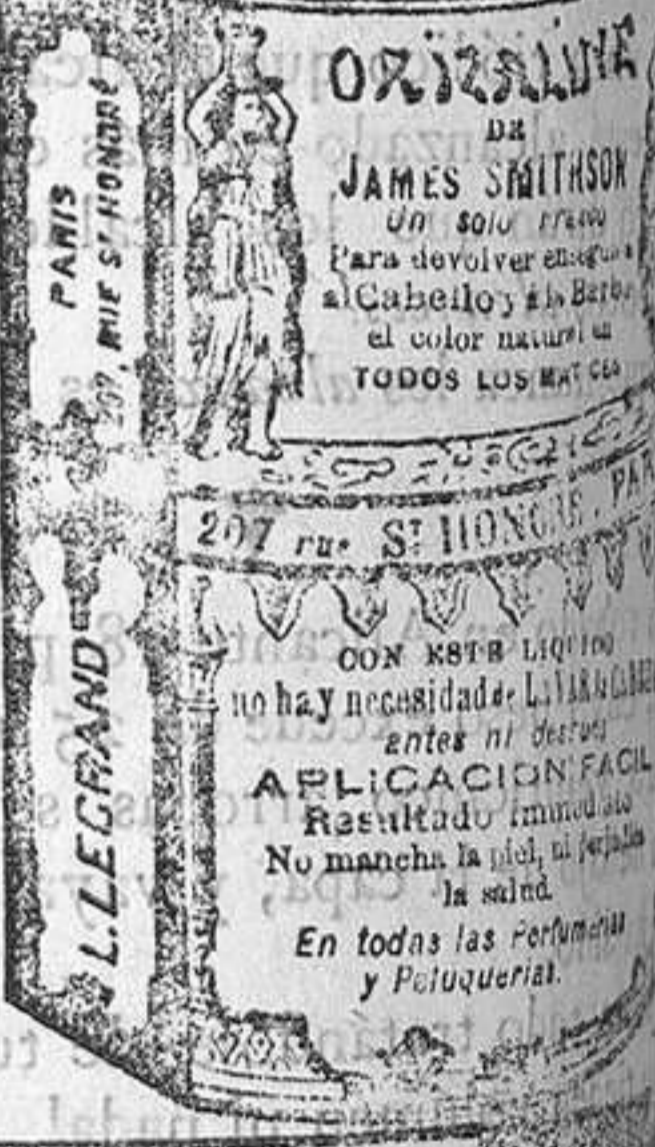 PARIS
207, RUE St HONORÉ
L. LEGRAND
ORIZALINE
DE
JAMES SMITHSON
Un solo frasco
Para devolver enseguida
al Cabello y á la Barba
el color natural en
TODOS LOS MATICES
207 rue St HONORÉ, PARI
CON ESTE LIQUIDO
no hay necesidad de LAVAR la CABEZA
antes ni despues
APLICACION FACIL
Resultado immediato
No mancha la piel, ni perjudica
la salud.
En todas las Perfumerias
y Peluquerias.